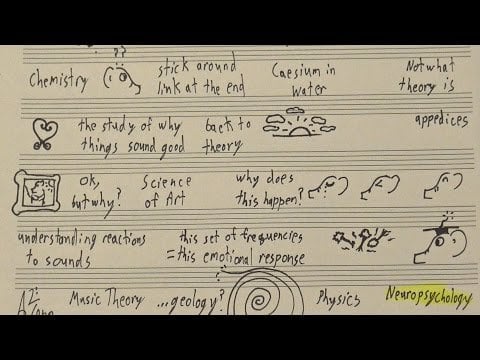 ??
Chemistry
stick around
link at the end
Caesium in
water
Not what
theory is
the study of why
things sound good
back to
theory
appedices
ok,
but why?
Science
of Art
why does
this happen?
understanding reactions
to sounds
this set of frequencies
= this emotional response
Music Theory
...geology?
?
Physics
Neuropsychology